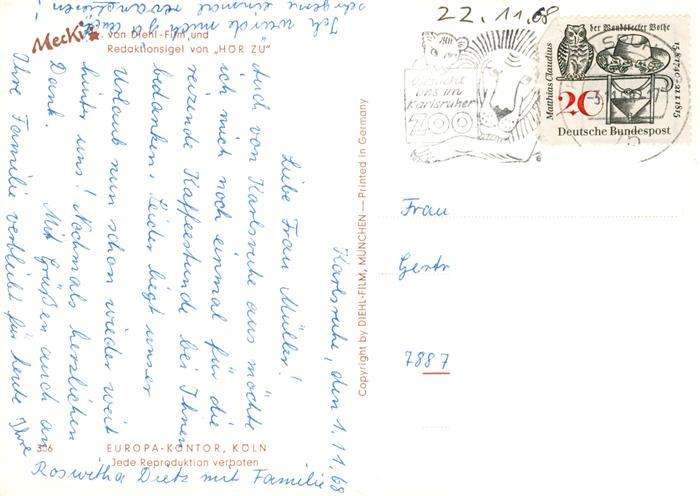 22.11.68
Mecki von Diehl-Film und
Redaktionsigel von "HÖR ZU"
Karlsruhe, den 1.11.68
Liebe Frau Müller!
Auch von Karlsruhe aus möchte
ich mich noch einmal für die
reizende Kaffeestunde bei Ihnen
bedanken. Leider liegt unser
Urlaub nun schon wieder weit
hinter uns! Nochmals herzlichen
Dank. Mit Grüßen auch an
Ihre Familie verbleibt für heute Ihre
Roswitha Dietz mit Familie
Ich würde mich ja auch
gerne einmal revanchieren
306
EUROPA-KONTOR, KÖLN
Jede Reproduktion verboten
Copyright by DIEHL-FILM, MÜNCHEN — Printed in Germany
uns im
Karlsruher
ZOO
Matthias Claudius
der Wandsbecker Bothe
15.8.1740-21.1.1815
20
Deutsche Bundespost
Frau
Gertr
7887